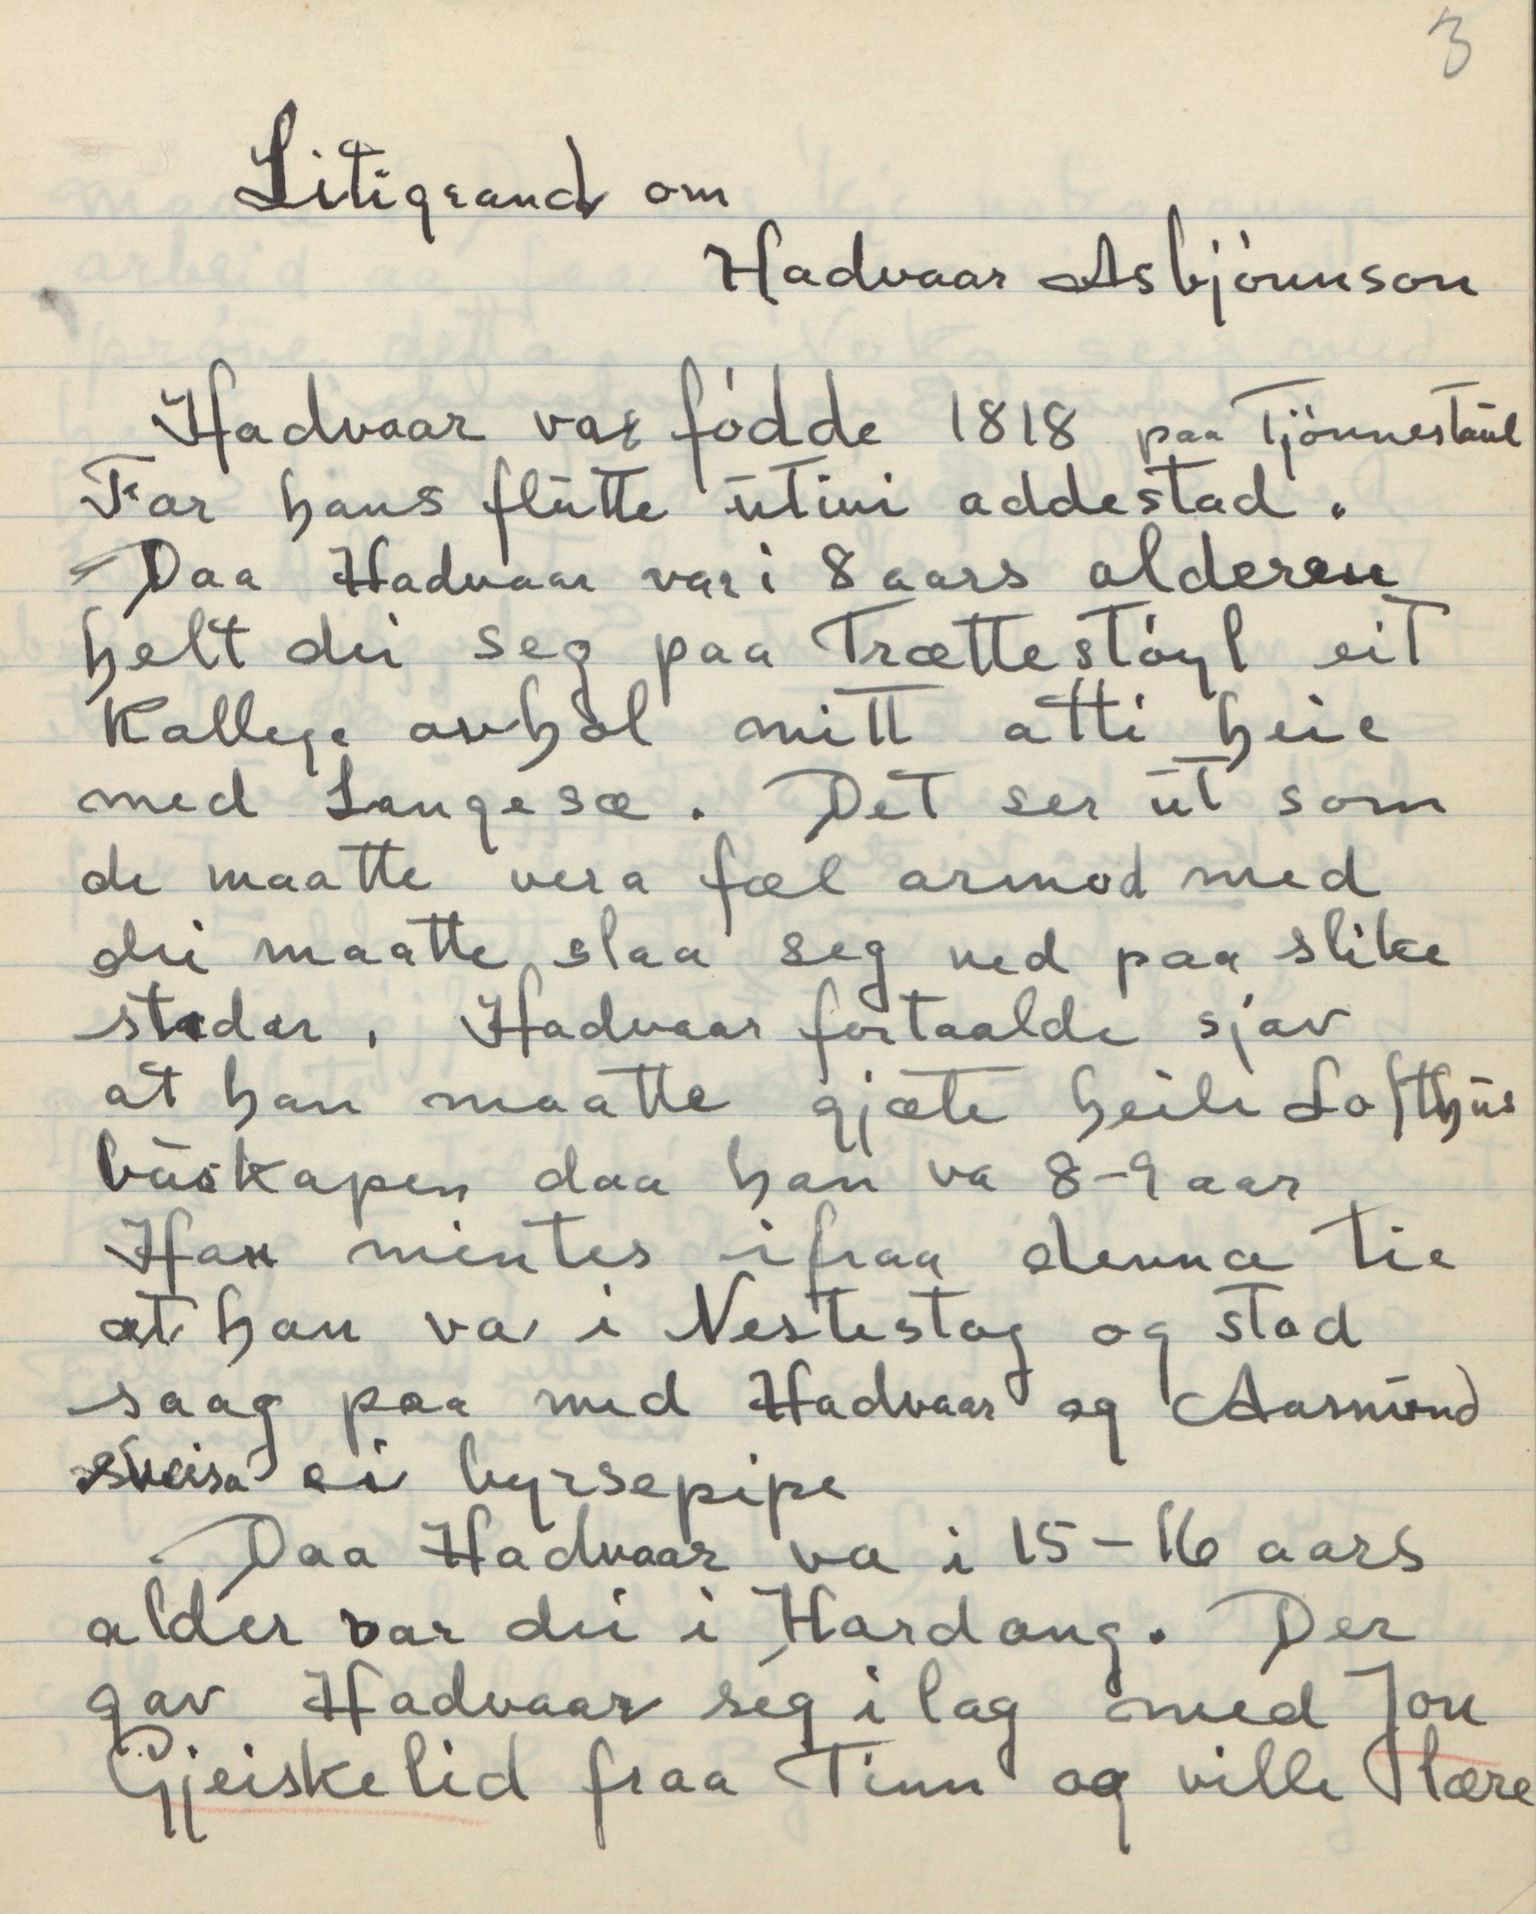 3
Litigrand om
Hadvaar Asbjónnson
Hadvaar var fódde 1818 paa Tjönnestaül
Far hans flütte ütini addestad.
Daa Hadvaar var i 8 aars alderen
helt dei seg paa Trættestóyl eit
Kallege avhol mitt atti heie
med Langesæ. Det ser üt som
de maatte vera fæl armod med
dei maatte slaa seg ned paa slike
stader. Hadvaar fortaalde sjav
at han maatte gjæte heile Lofthüs
büskapen daa han va 8-9 aar
Han mintes ifraa denna tie
at han va i Nestestog og stod
saag paa med Hadvaar og Aasmünd
sveisa ei byrsepipe
Daa Hadvaar va i 15-16 aars
alder var dei i Hardang. Der
gav Hadvaar seg i lag med Jon
Gjeiskelid fraa Tinn og ville lære